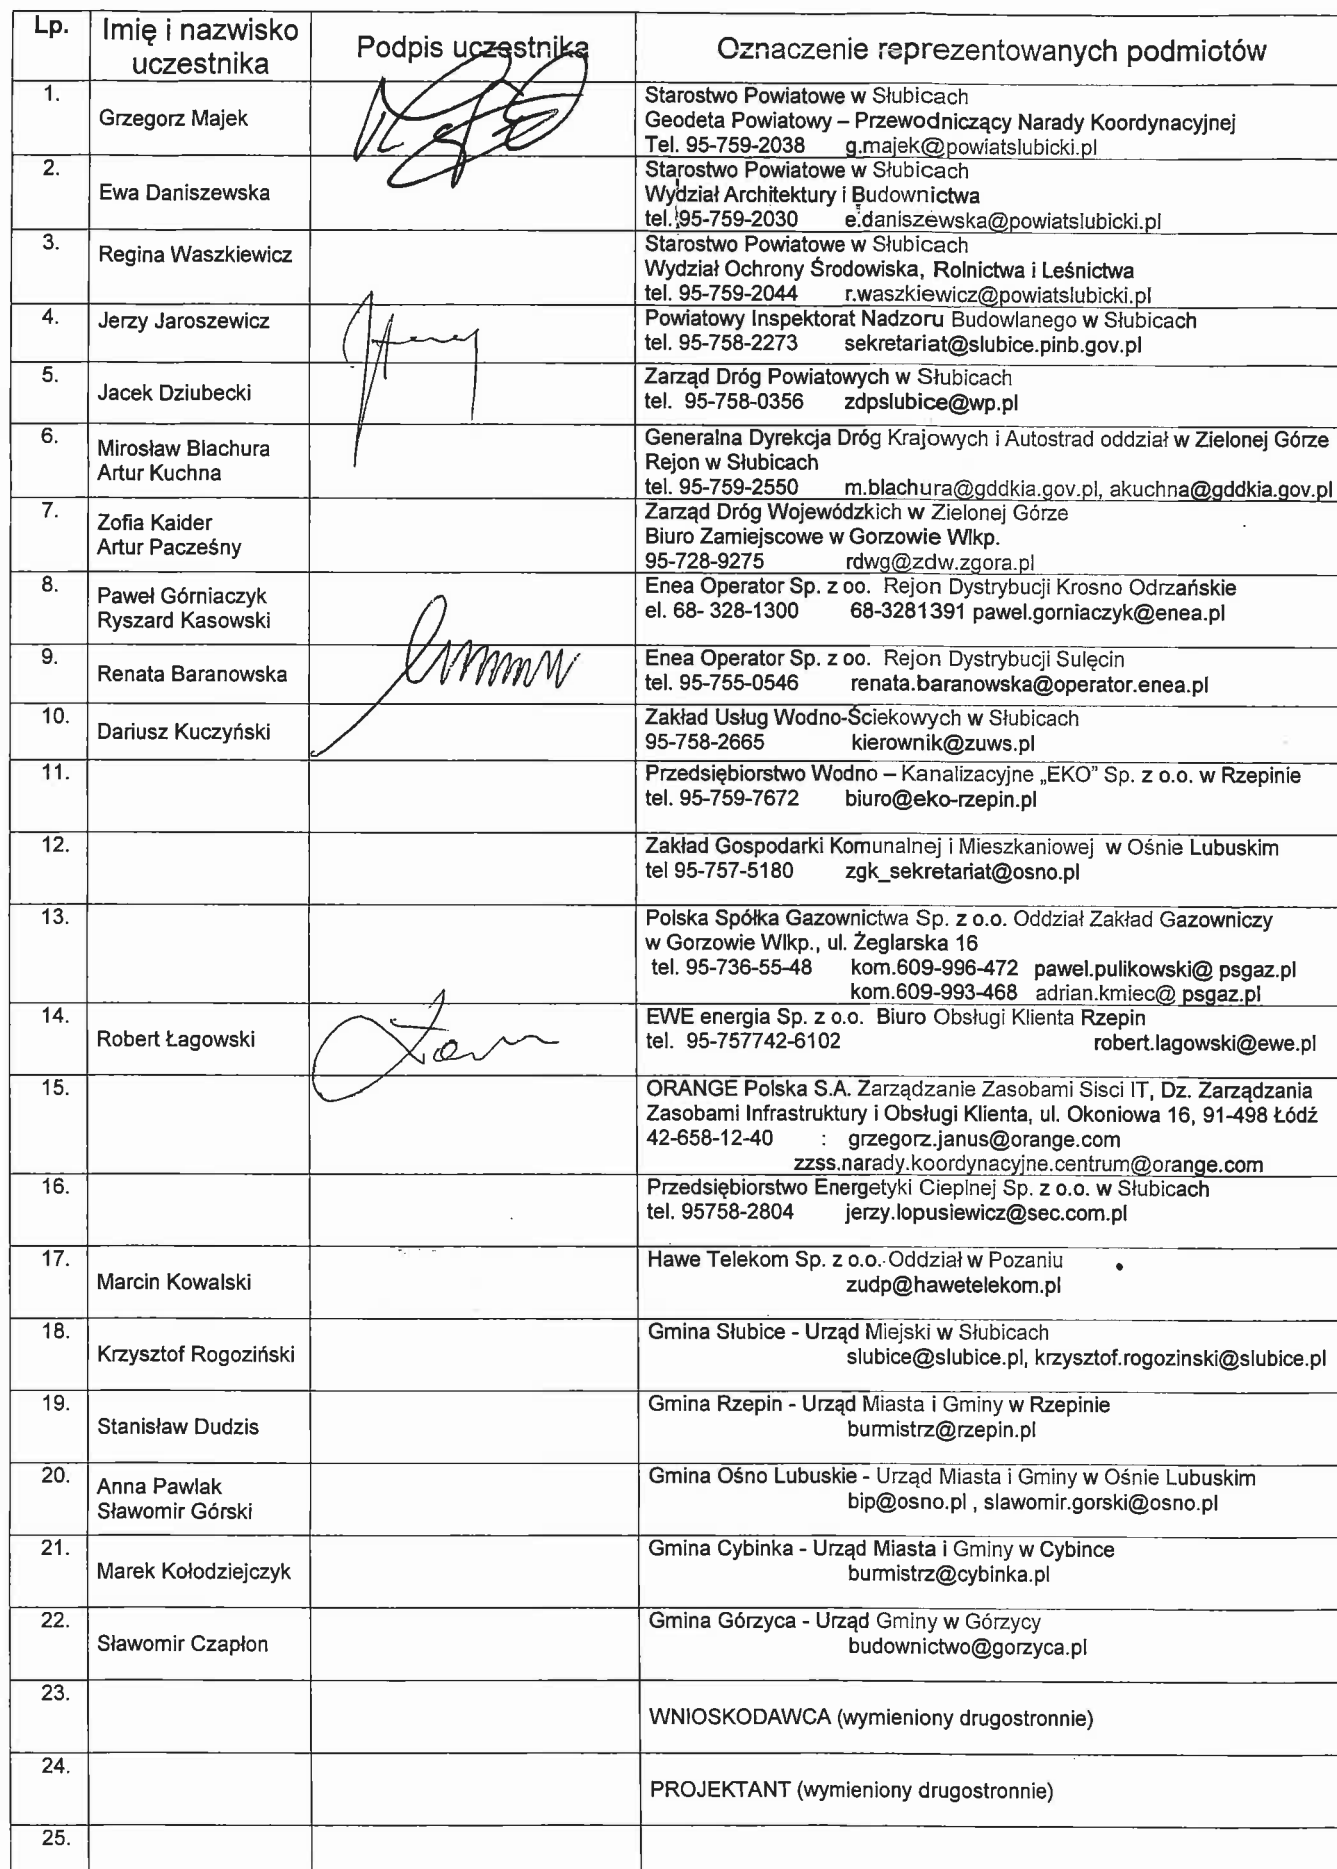 Lp.
Imię i nazwisko
uczestnika
Podpis uczestnika
Oznaczenie reprezentowanych podmiotów
1.
Grzegorz Majek
Starostwo Powiatowe w Słubicach
Geodeta Powiatowy – Przewodniczący Narady Koordynacyjnej
Tel. 95-759-2038 g.majek@powiatslubicki.pl
2.
Ewa Daniszewska
Starostwo Powiatowe w Słubicach
Wydział Architektury i Budownictwa
tel. 95-759-2030 e.daniszewska@powiatslubicki.pl
3.
Regina Waszkiewicz
Starostwo Powiatowe w Słubicach
Wydział Ochrony Środowiska, Rolnictwa i Leśnictwa
tel. 95-759-2044 r.waszkiewicz@powiatslubicki.pl
4.
Jerzy Jaroszewicz
Powiatowy Inspektorat Nadzoru Budowlanego w Słubicach
tel. 95-758-2273 sekretariat@slubice.pinb.gov.pl
5.
Jacek Dziubecki
Zarząd Dróg Powiatowych w Słubicach
tel. 95-758-0356 zdpslubice@wp.pl
6.
Mirosław Blachura
Artur Kuchna
Generalna Dyrekcja Dróg Krajowych i Autostrad oddział w Zielonej Górze
Rejon w Słubicach
tel. 95-759-2550 m.blachura@gddkia.gov.pl, akuchna@gddkia.gov.pl
7.
Zofia Kaider
Artur Pacześny
Zarząd Dróg Wojewódzkich w Zielonej Górze
Biuro Zamiejscowe w Gorzowie Wlkp.
95-728-9275 rdwg@zdw.zgora.pl
8.
Paweł Górniaczyk
Ryszard Kasowski
Enea Operator Sp. z oo. Rejon Dystrybucji Krosno Odrzańskie
el. 68- 328-1300 68-3281391 pawel.gorniaczyk@enea.pl
9.
Renata Baranowska
Enea Operator Sp. z oo. Rejon Dystrybucji Sulęcin
tel. 95-755-0546 renata.baranowska@operator.enea.pl
10.
Dariusz Kuczyński
Zakład Usług Wodno-Ściekowych w Słubicach
95-758-2665 kierownik@zuws.pl
11.
Przedsiębiorstwo Wodno – Kanalizacyjne „EKO” Sp. z o.o. w Rzepinie
tel. 95-759-7672 biuro@eko-rzepin.pl
12.
Zakład Gospodarki Komunalnej i Mieszkaniowej w Ośnie Lubuskim
tel 95-757-5180 zgk_sekretariat@osno.pl
13.
Polska Spółka Gazownictwa Sp. z o.o. Oddział Zakład Gazowniczy
w Gorzowie Wlkp., ul. Żeglarska 16
tel. 95-736-55-48 kom.609-996-472 pawel.pulikowski@ psgaz.pl
kom.609-993-468 adrian.kmiec@ psgaz.pl
14.
Robert Łagowski
EWE energia Sp. z o.o. Biuro Obsługi Klienta Rzepin
tel. 95-757742-6102 robert.lagowski@ewe.pl
15.
ORANGE Polska S.A. Zarządzanie Zasobami Sisci IT, Dz. Zarządzania
Zasobami Infrastruktury i Obsługi Klienta, ul. Okoniowa 16, 91-498 Łódź
42-658-12-40 : grzegorz.janus@orange.com
zzss.narady.koordynacyjne.centrum@orange.com
16.
Przedsiębiorstwo Energetyki Cieplnej Sp. z o.o. w Słubicach
tel. 95758-2804 jerzy.lopusiewicz@sec.com.pl
17.
Marcin Kowalski
Hawe Telekom Sp. z o.o. Oddział w Pozaniu
zudp@hawetelekom.pl
18.
Krzysztof Rogoziński
Gmina Słubice - Urząd Miejski w Słubicach
slubice@slubice.pl, krzysztof.rogozinski@slubice.pl
19.
Stanisław Dudzis
Gmina Rzepin - Urząd Miasta i Gminy w Rzepinie
burmistrz@rzepin.pl
20.
Anna Pawlak
Sławomir Górski
Gmina Ośno Lubuskie - Urząd Miasta i Gminy w Ośnie Lubuskim
bip@osno.pl , slawomir.gorski@osno.pl
21.
Marek Kołodziejczyk
Gmina Cybinka - Urząd Miasta i Gminy w Cybince
burmistrz@cybinka.pl
22.
Sławomir Czapłon
Gmina Górzyca - Urząd Gminy w Górzycy
budownictwo@gorzyca.pl
23.
WNIOSKODAWCA (wymieniony drugostronnie)
24.
PROJEKTANT (wymieniony drugostronnie)
25.